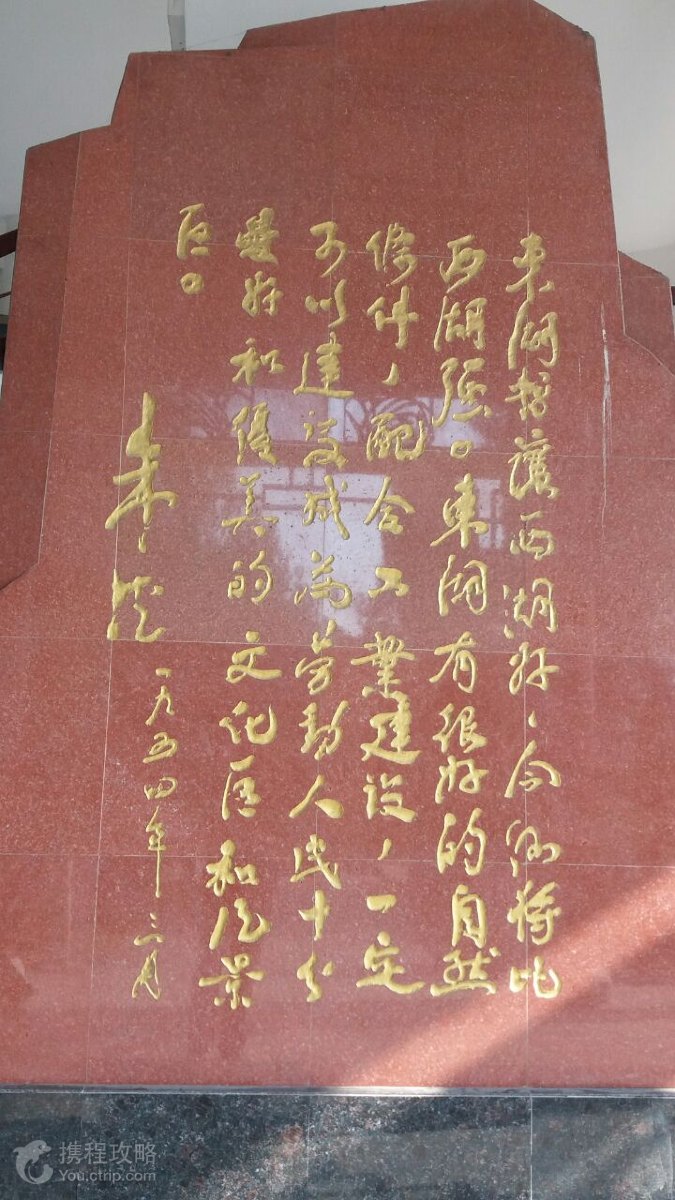 東湖暫讓西湖好、今後將比
西湖强。東湖有很好的自然
條件，配合工業建設，一定
可以建設成為勞動人民十分
愛好和優美的文化區和風景
區。
朱德 一九五四年三月
携程攻略
You.ctrip.com